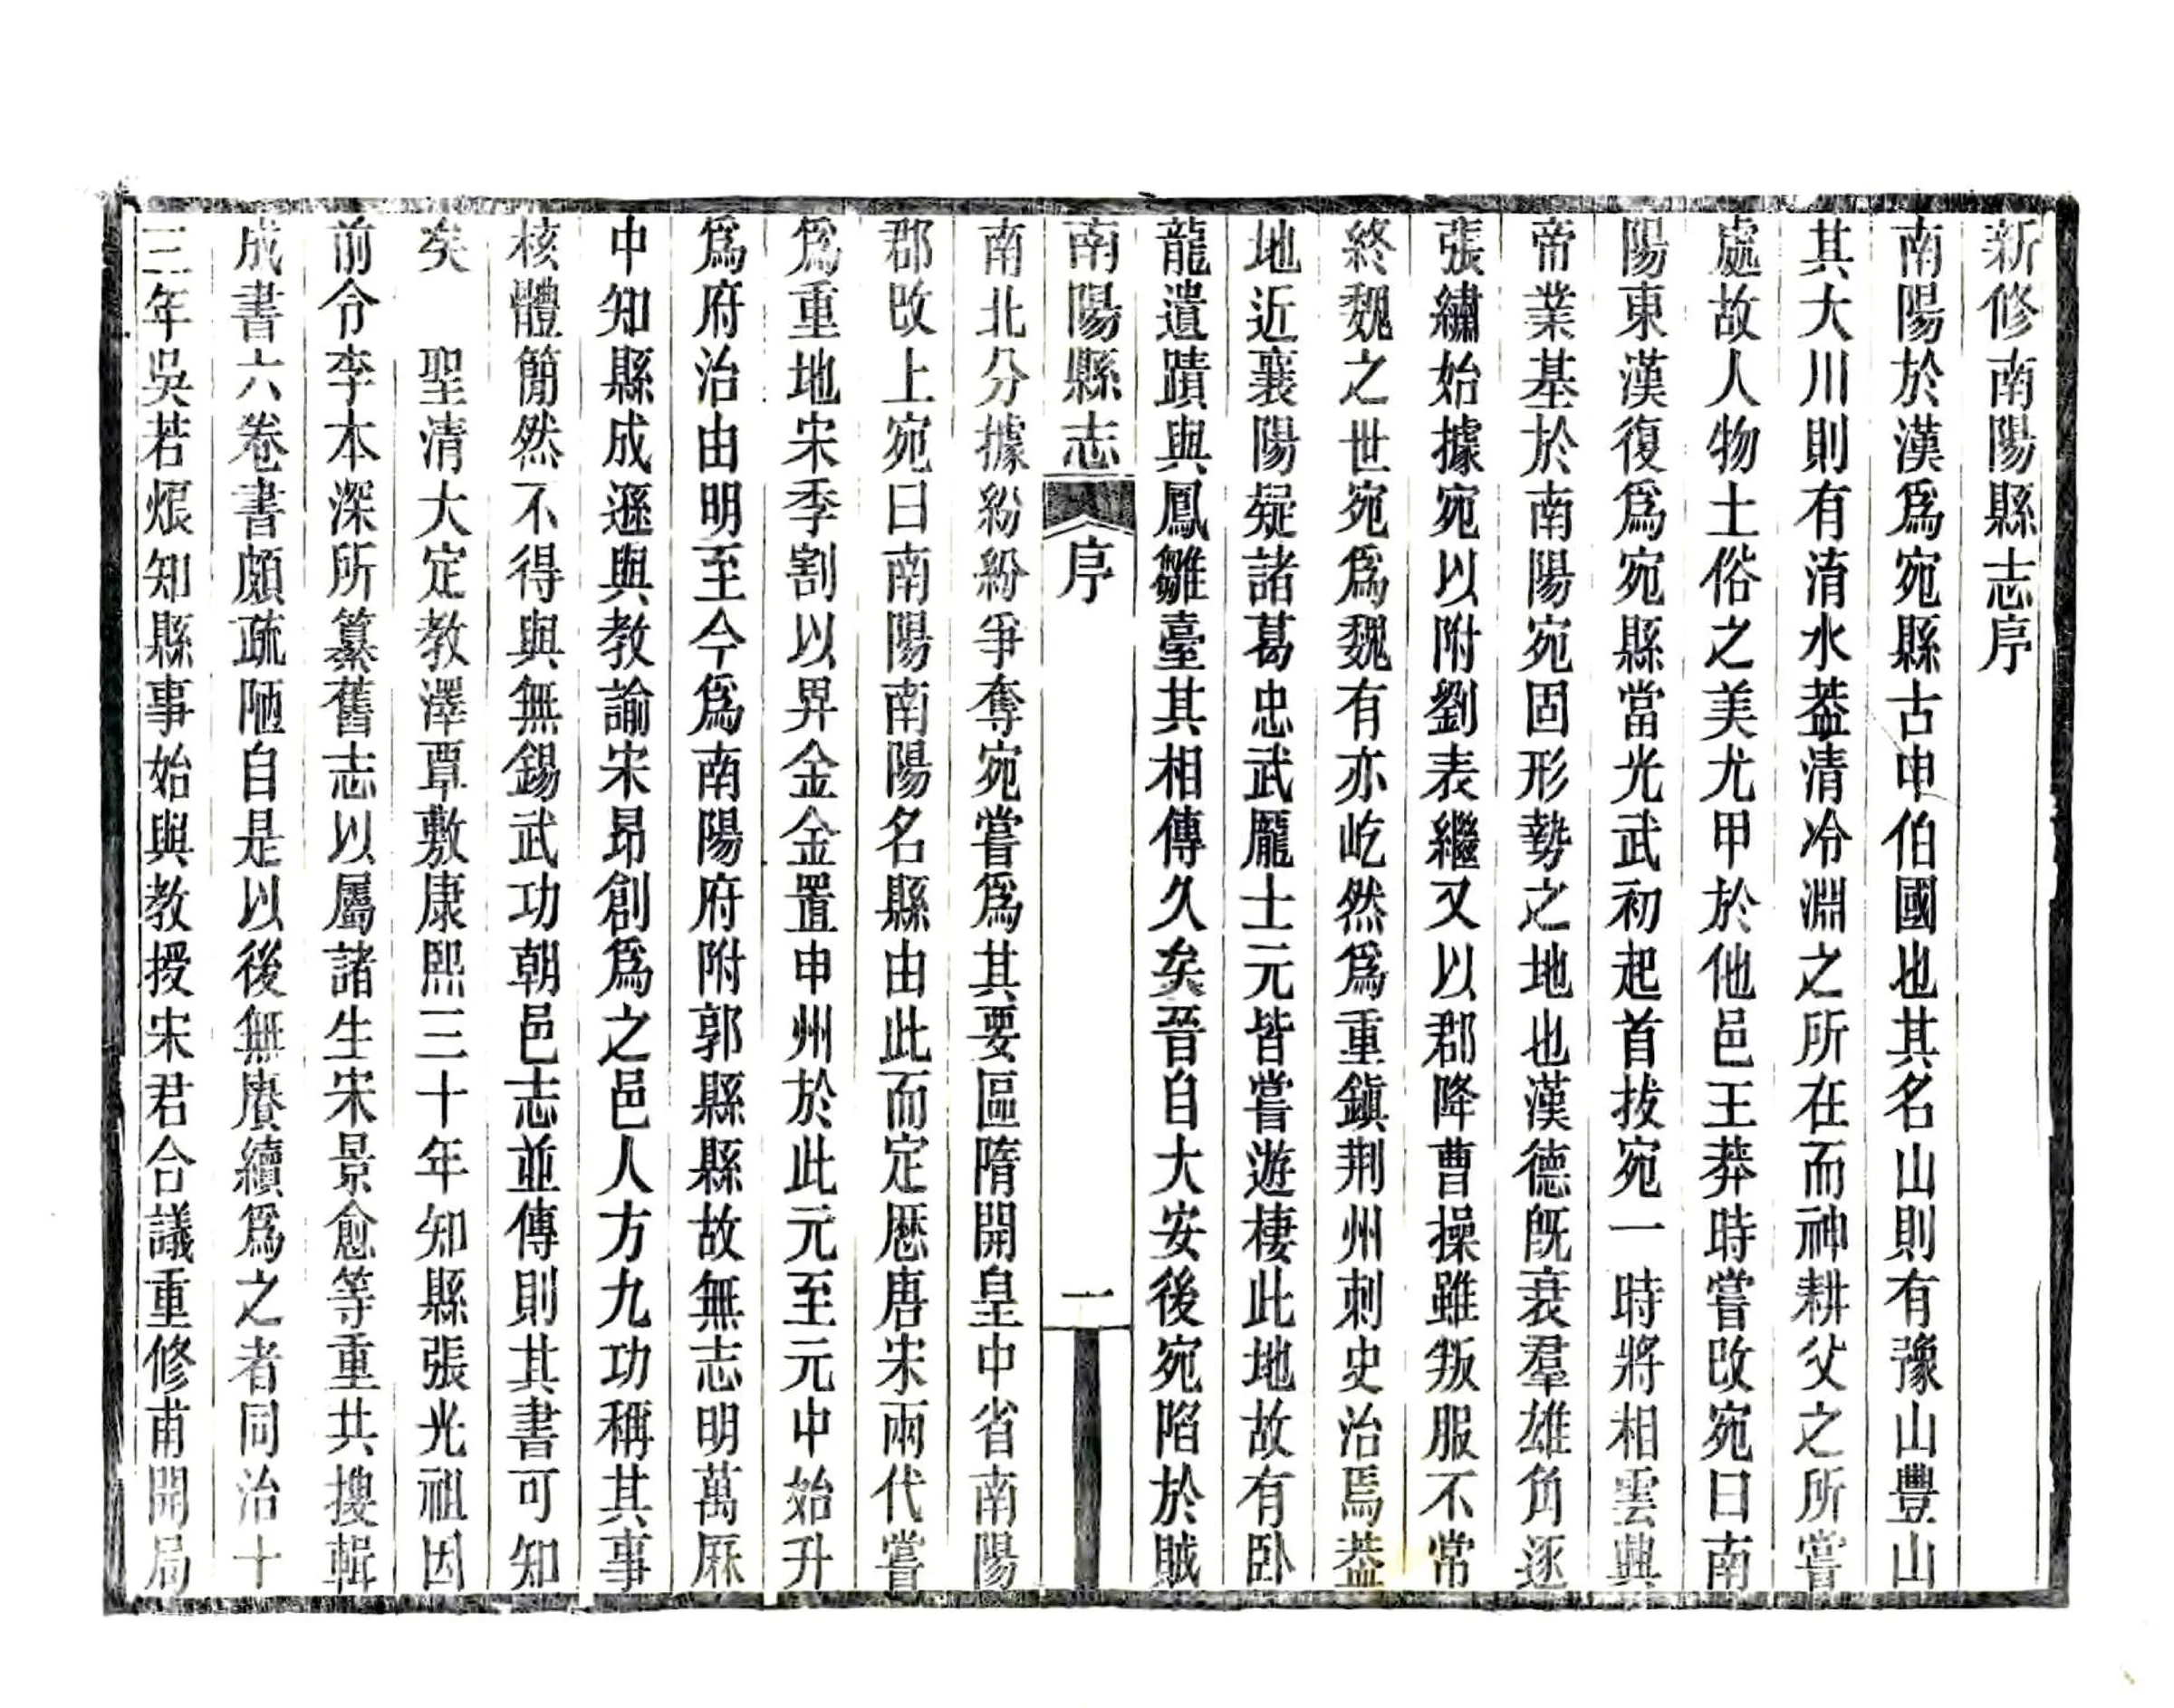 新修南陽縣志序
南陽於漢爲宛縣古申伯國也其名山則有豫山豐山
其大川則有淯水葢清冷淵之所在而神耕父之所嘗
處故人物土俗之美尤甲於他邑王莽時嘗改宛曰南
陽東漢復爲宛縣當光武初起首拔宛一時將相雲興
帝業基於南陽宛固形勢之地也漢德旣衰羣雄角逐
張繡始據宛以附劉表繼又以郡降曹操雖叛服不常
終魏之世宛爲魏有亦屹然爲重鎭荆州刺史治焉葢
地近襄陽疑諸葛忠武龐士元皆嘗遊棲此地故有卧
龍遺蹟與鳳雛臺其相傳久矣晉自大安後宛陷於賊
南陽縣志
序
一
南北分據紛紛爭奪宛嘗爲其要區隋開皇中省南陽
郡改上宛曰南陽南陽名縣由此而定厯唐宋兩代嘗
爲重地宋季割以畀金金置申州於此元至元中始升
爲府治由明至今爲南陽府附郭縣縣故無志明萬厤
中知縣成遜與教諭宋昂創爲之邑人方九功稱其事
核體簡然不得與無錫武功朝邑志並傳則其書可知
矣　聖清大定教澤覃敷康熙三十年知縣張光祖因
前令李本深所纂舊志以屬諸生宋景愈等重共搜輯
成書六卷書頗疏陋自是以後無賡續爲之者同治十
三年吳若烺知縣事始與教授宋君合議重修甫開局